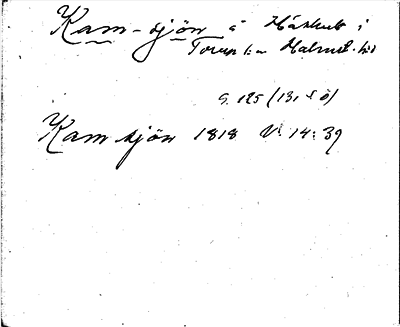 Kam-sjön å Håshult i
Torup s:n Halmst. hd
G. 125 (131 S Ö)
Kamsjön 1818 V: 14: 39